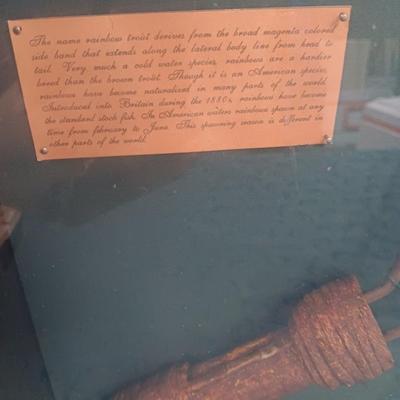 The name rainbow trout derives from the broad magenta colored
side band that extends along the lateral body line from head to
tail. Very much a cold water species, rainbows are a hardier
breed than the brown trout. Though it is an American species,
rainbows have become naturalized in many parts of the world.
Introduced into Britain during the 1880s, rainbows have become
the standard stock fish. In American waters rainbows spawn at any
time from february to June. This spawning season is different in
other parts of the world.